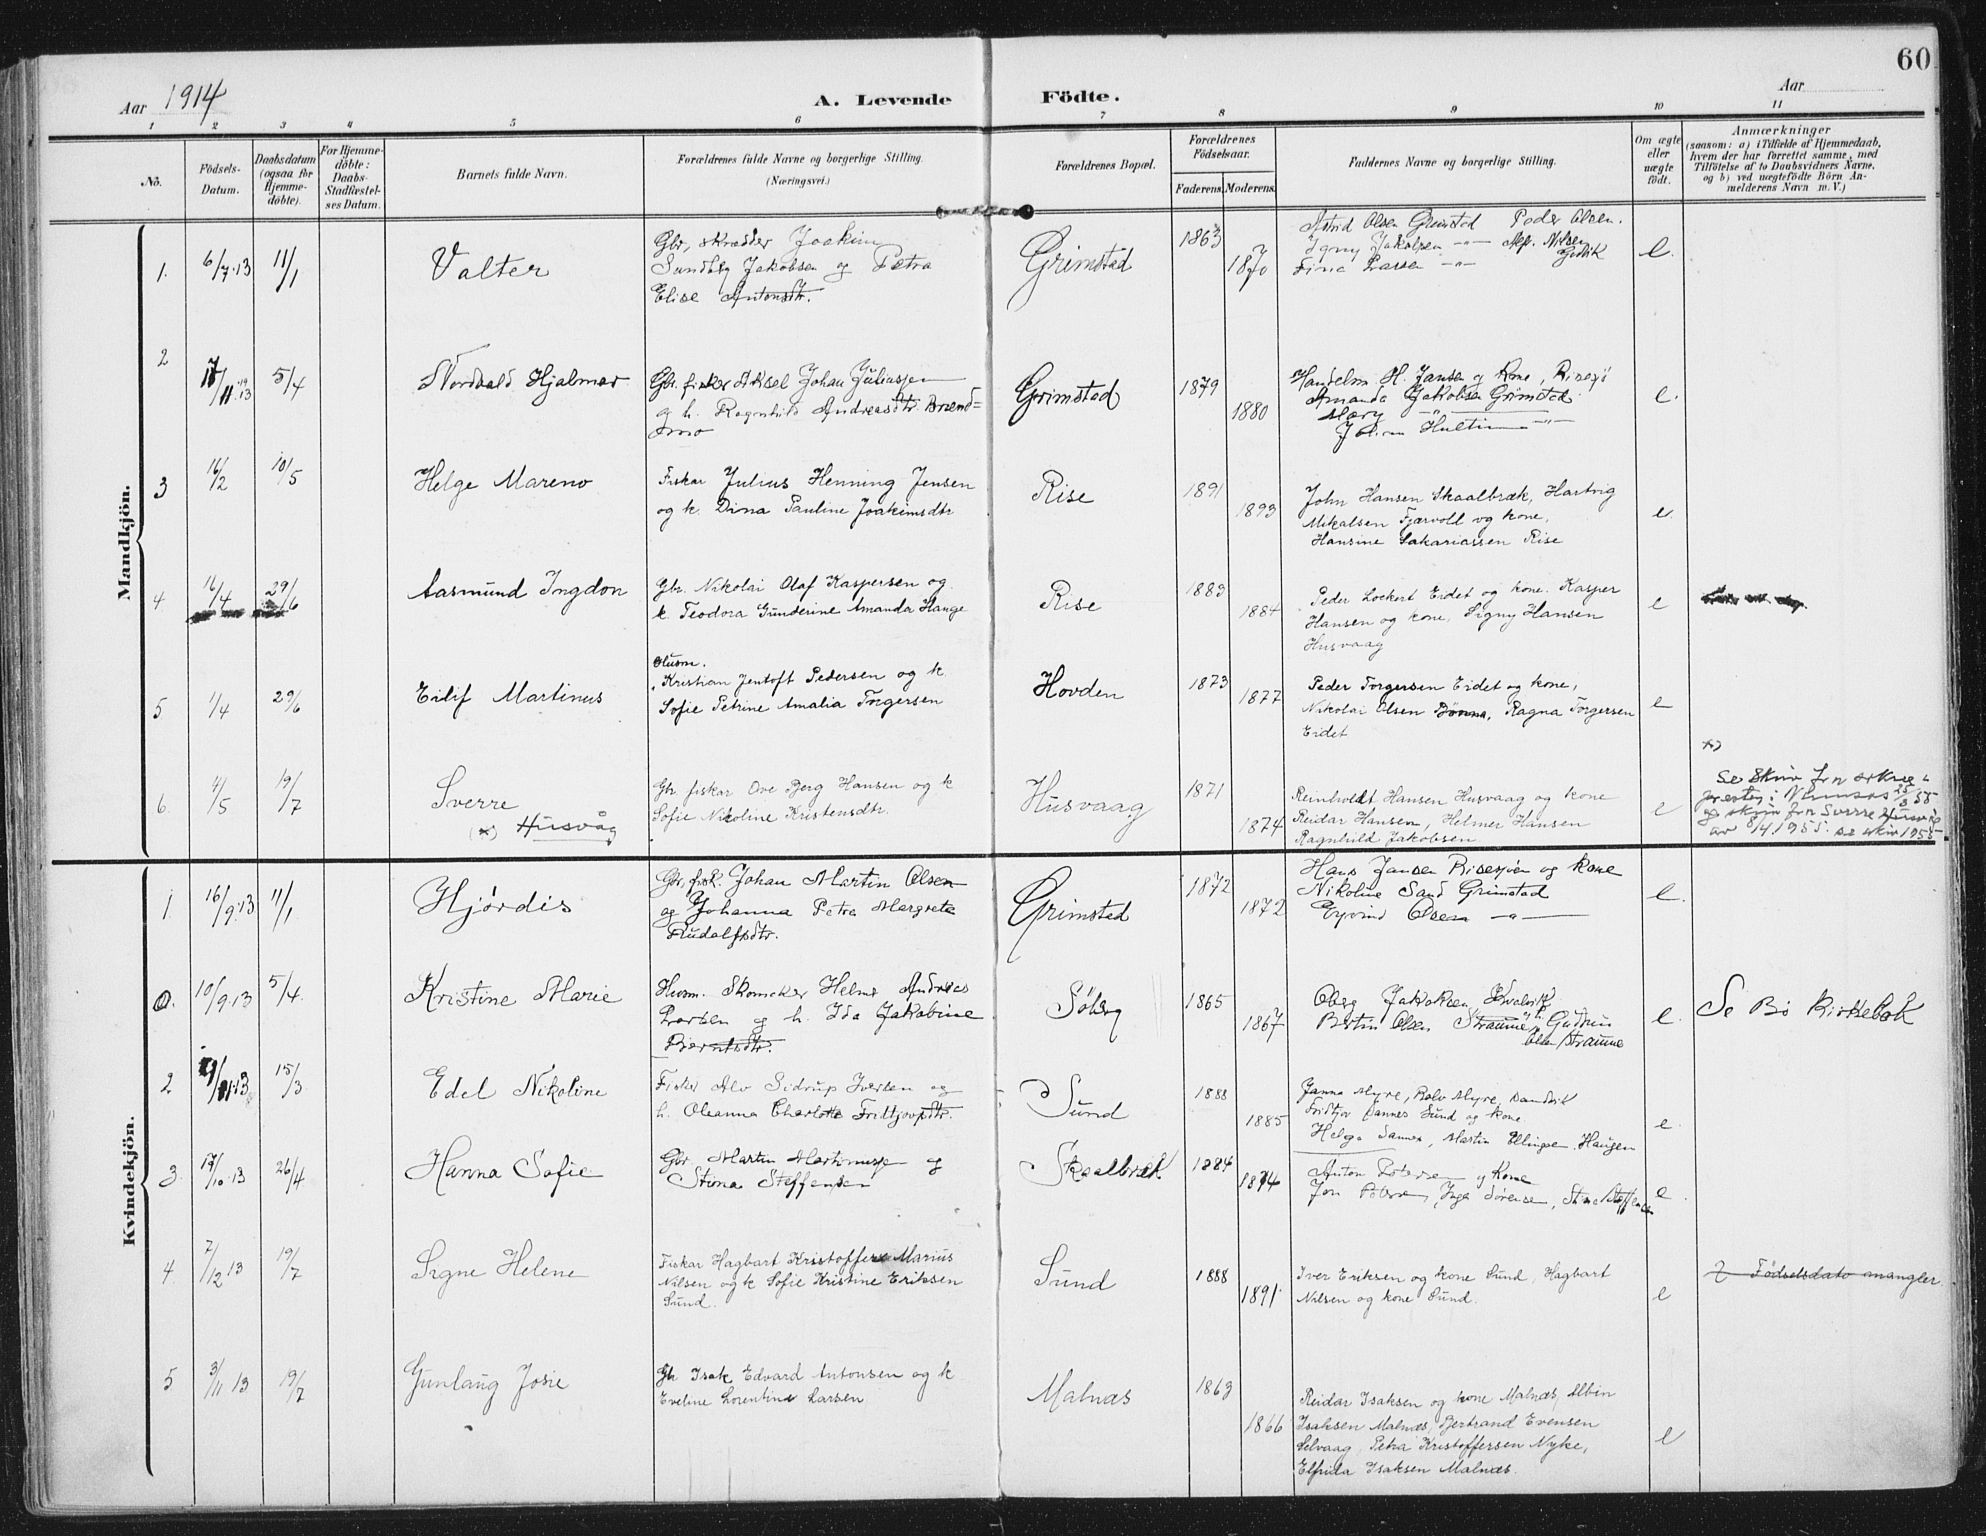 60
Aar 1914
A. Levende Födte.
Aar
1 2 3 4 5 6 7 8 9 10 11
No.
Födsels-
Datum.
Daabsdatum
(ogsaa for
Hjemme-
döbte).
For Hjemme-
döbte:
Daabs-
Stadfæstel-
ses Datum.
Barnets fulde Navn.
Forældrenes fulde Navne og borgerlige Stilling.
(Næringsvei.)
Forældrenes Bopæl.
Forældrenes
Födselsaar.
Faderens. Moderens.
Faddernes Navne og borgerlige Stilling.
Om ægte
eller
uægte
födt.
Anmærkninger
(saasom: a) i Tilfælde af Hjemmedaab,
hvem der har forrettet samme, med
Tilföielse af to Daabsvidners Navne,
og b) ved uægtefödte Börn An-
melderens Navn m. V.)
Mandkjön.
1. 6/7.13 11/1
Valter
Gbr. skrædder Joakim
Sundberg Jakobsen og Petra
Elise Antonsdtr.
Grimstad
1863
1870
Astrid Olsen Grimstad Peder Olsen.
Jakobsen -"- Alf. Nilsen
Fina Larsen -"-
e.
2
5/4
Nordvald Hjalmar
Gbr. fisker Aksel Johan Juliussen
og h. Ragnhild Andreasdtr. Brænd=
mo
Grimstad
1879
1880
Handelsm H. Jansen og kone, Risesjø
Amanda Jakobsen Grimstad
Mary -"-
Hultin -"-
e.
3 16/2 10/5
Helge Mareno
Fiskar Julius Henning Jensen
og k. Dina Pauline Joakimsdtr
Rise
1891
1893
John Hansen Skaalbræk, Hartvig
Mikalsen Fjærvoll og kone,
Hansine Sakariassen Rise
e.
4. 16/4 29/6
Aasmund Ingdon
Gbr. Nikolai Olaf Kaspersen og
k. Teodora Gunderine Amanda Hange
Rise
1883
1884
Peder Lockert Eidet og kone. Kasper
Hansen og kone, Signy Hansen
Husvaag
e
5 1/4 29/6
Eilif Martinus
Husm.
Kristian Jentoft Pedersen og k
Sofie Petrine Amalia Torgersen
Hovden
1873
1877
Peder Torgersen Eidet og kone,
Nikolai Olsen Bønna, Ragna Torgersen
Eidet
e
6. 4/5 19/7
Sverre
(x) Husvåg
Gbr fiskar Ove Berg Hansen og k
Sofie Nikoline Kristensdtr.
Husvaag
1871
1874
Reinholdt Hansen Husvaag og kone
Reidar Hansen, Helmer Hansen
Ragnhild Jakobsen
e
x)
Se skriv frå
og skriv frå Sverre
av 8/4 1955. se skriv 1955
Kvindekjön.
1. 16/9.13 11/1
Hjørdis
Gbr, fisk. Johan Martin Olsen
og Johanna Petra Margrete
Rudolfsdtr.
Grimstad
1872
1872
Hans Jansen Risesjøen og kone
Nikoline Sand Grimstad
Eyvind Olsen -"-
e.
0. 10/9.13 5/4.
Kristine Marie
Husm. Skomaker Helmer Andreas
Larsen og h. Ida Jakobine
Berntsdtr.
Søberg
1865
1867
Oberg Jakobsen
Bertin Olsen Straume, Gudrun
Olsen Straume
e.
Se Bø Kirkebok
2 15/3
Edel Nikoline
Fisker Alv Sidrup Iversen og
h. Oleanna Charlotte Fritjovsdtr.
Sund
1888
1885
Janna Myre, Rolv Myre, Sandvik
Fridtjov Hannes Sund og kone
Helga Sannes, Martin Ellingsen, Haugen
e.
3. 17/10.13 26/4
Hanna Sofie
Gbr. Martin Martinussen og
Stina Steffensen
Skaalbræk
1884
1874
Anton Petersen og kone
Jon Petersen, Inga Sørensen, Stine Steffensen
e
4. 7/12 13 19/7
Signe Helene
Fiskar Hagbart Kristoffer Marius
Nilsen og k Sofie Kristine Eriksen
Sund.
Sund
1888
1891
Iver Eriksen og kone Sund, Hagbart
Nilsen og kone Sund.
e
2 Fødselsdato mangler.
5 3/11 13 19/7
Gunlaug Josie
Gbr Isak Edvard Antonsen og k
Eveline Lorentine Larsen
Malnæs
1863
1866
Reidar Isaksen og kone Malnæs, Albin
Isaksen Malnæs, Bertrand Evensen
Selvaag, Petra Kristoffersen Nyke,
Elfrida Isaksen Malnæs.
e